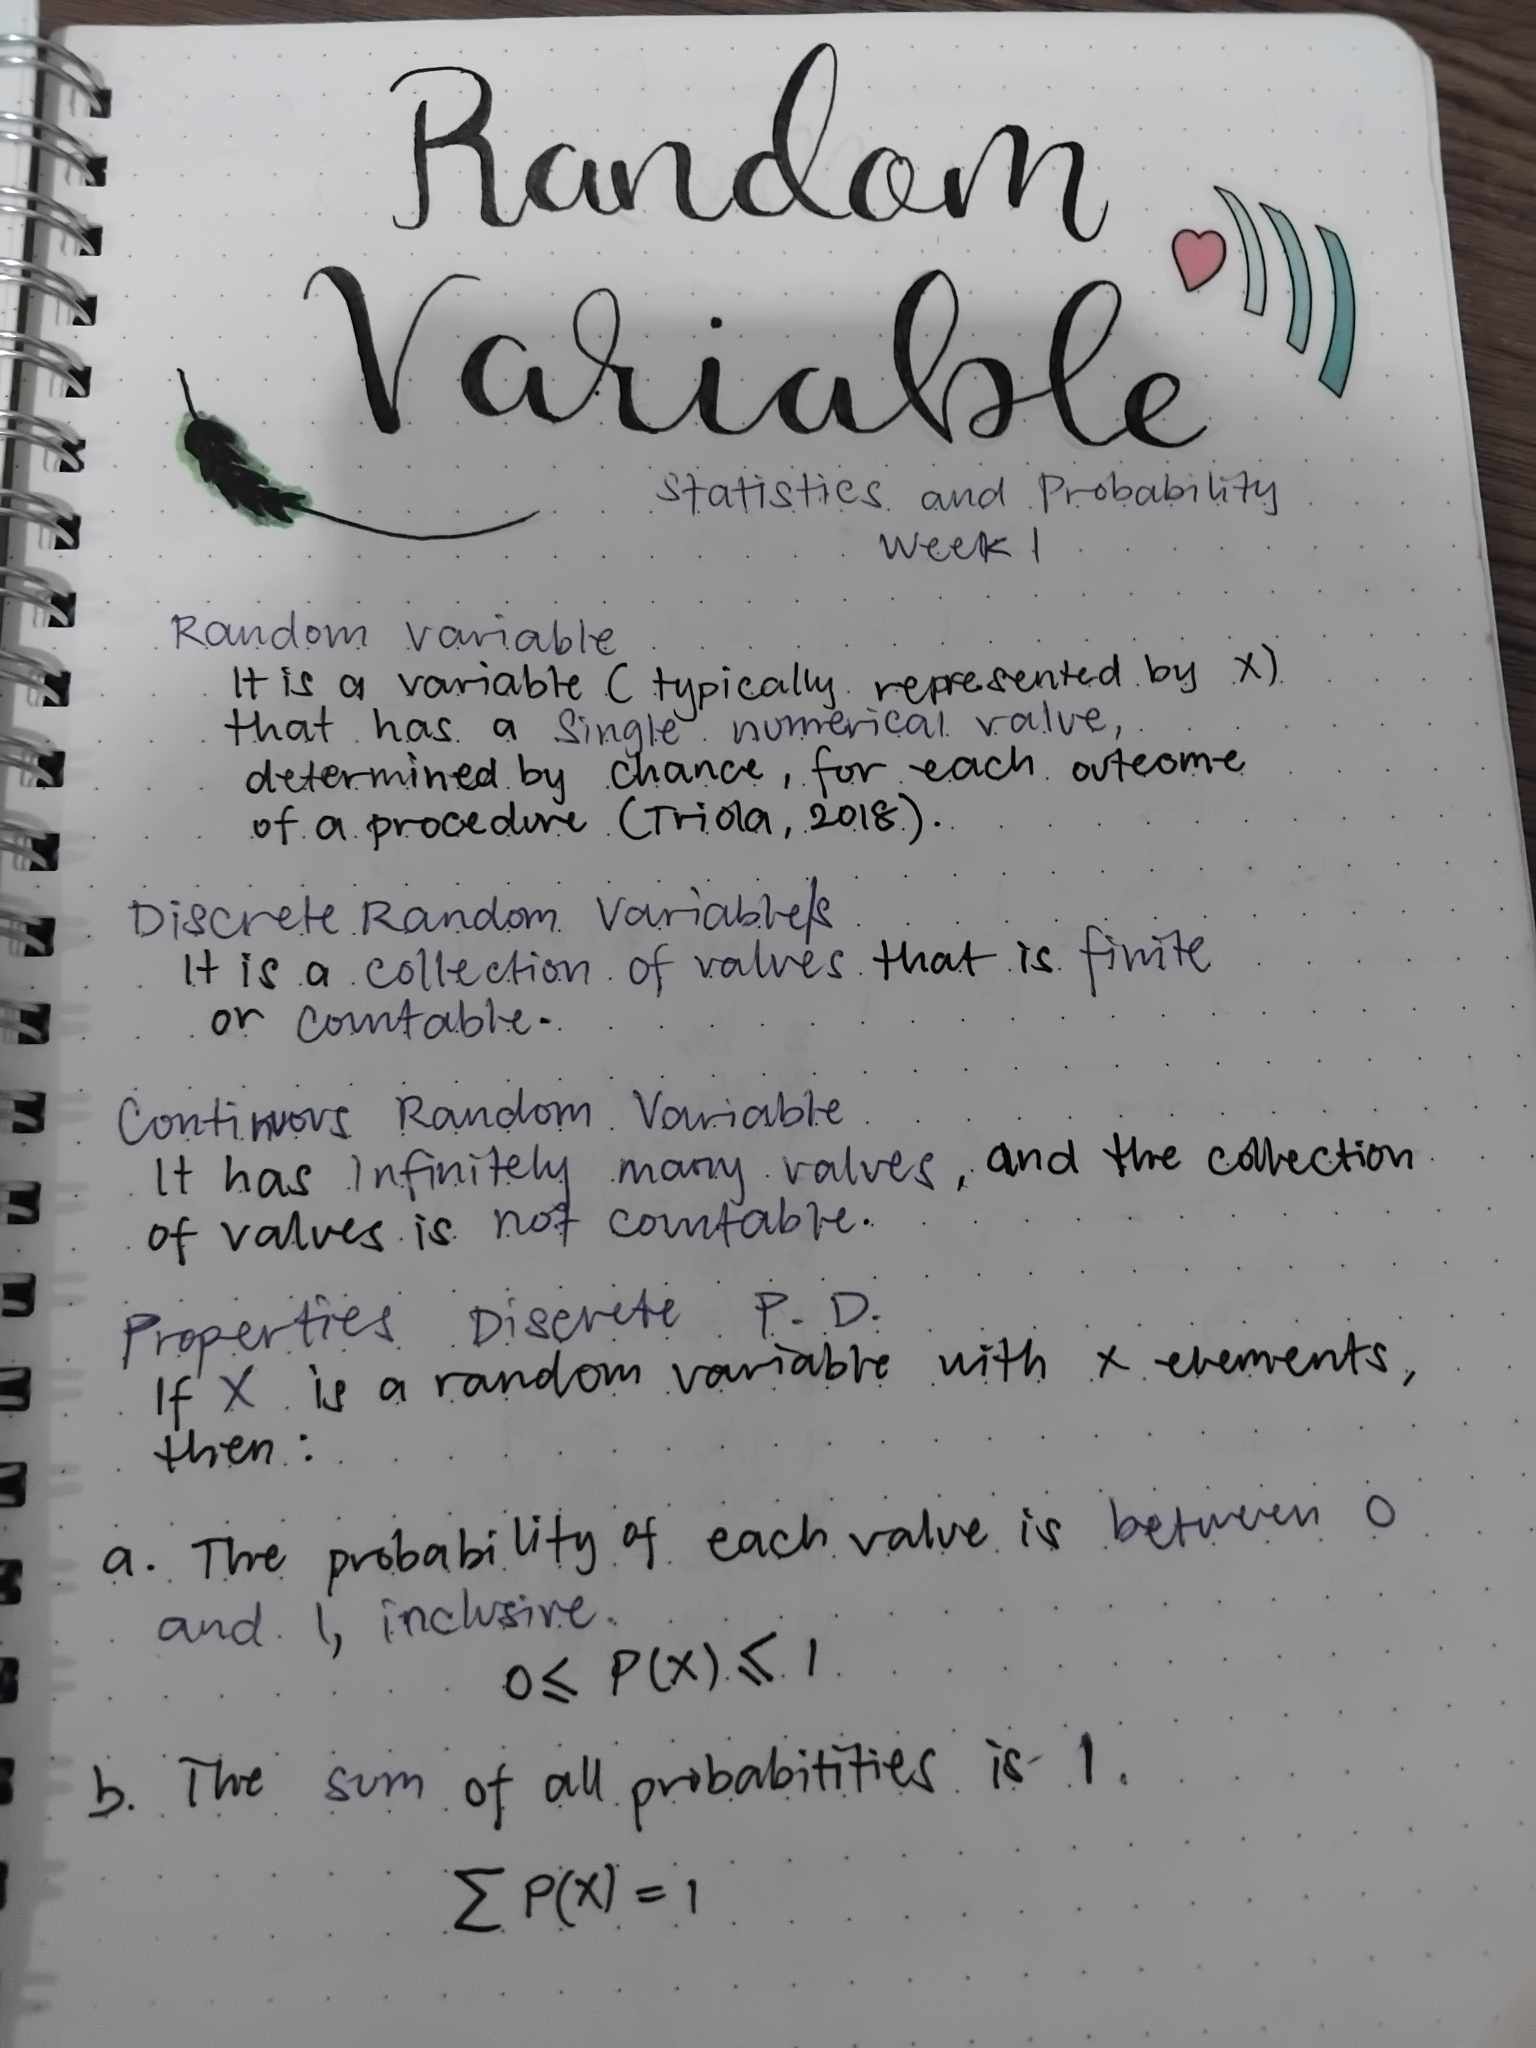 Random
Variable
Statistics and Probability
Week 1
Random variable
It is a variable (typically represented by x)
that has a single numerical value,
determined by chance, for each outcome
of a procedure (Triola, 2018).
Discrete Random Variable/s
It is a collection of values that is finite
or countable.
Continuous Random Variable
It has infinitely many values, and the collection
of values is not countable.
Properties Discrete P.D.
If X is a random variable with x elements,
then:
a. The probability of each value is between 0
and 1, inclusive.
0 ≤ P(X) ≤ 1
b. The sum of all probabitities is 1.
∑ P(X) = 1